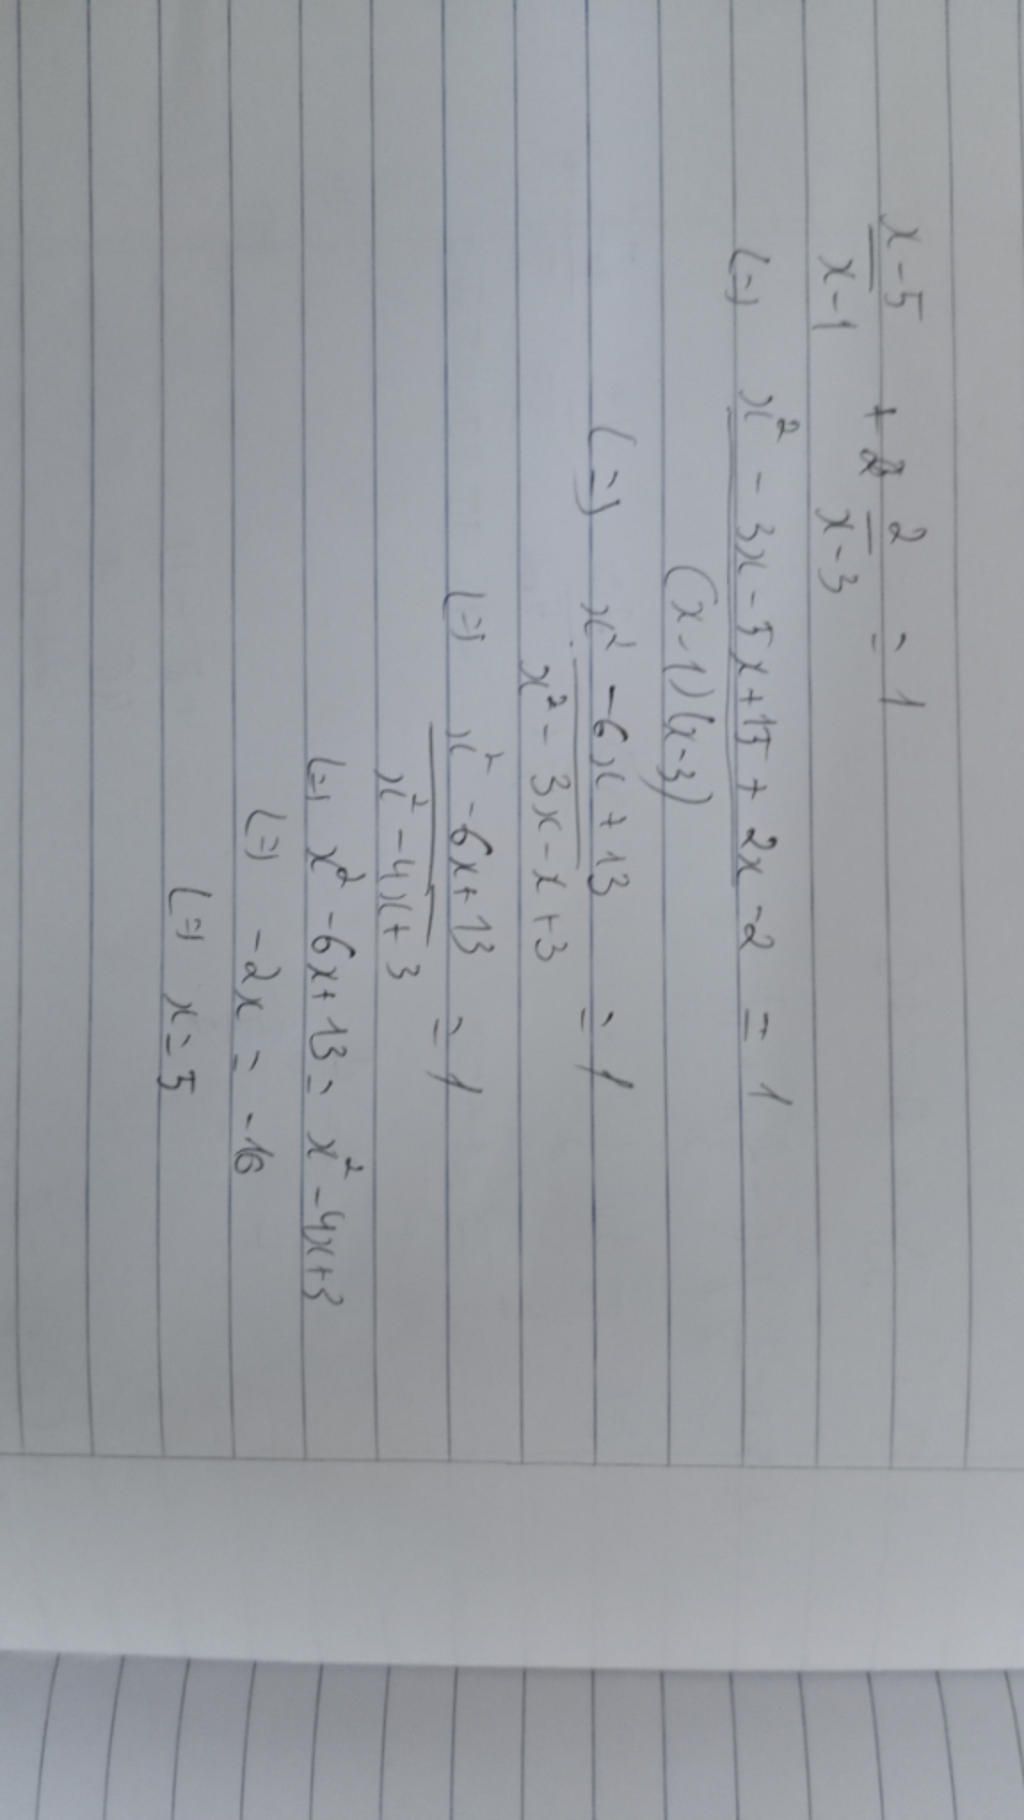 x-5/x-1 + 2/x-3 = 1
(=) x² - 3x - 5x + 15 + 2x - 2 / (x-1)(x-3) = 1
(=) x² - 6x + 13 / x² - 3x - x + 3 = 1
(=) x² - 6x + 13 / x² - 4x + 3 = 1
(=) x² - 6x + 13 = x² - 4x + 3
(=) -2x = -10
(=) x = 5